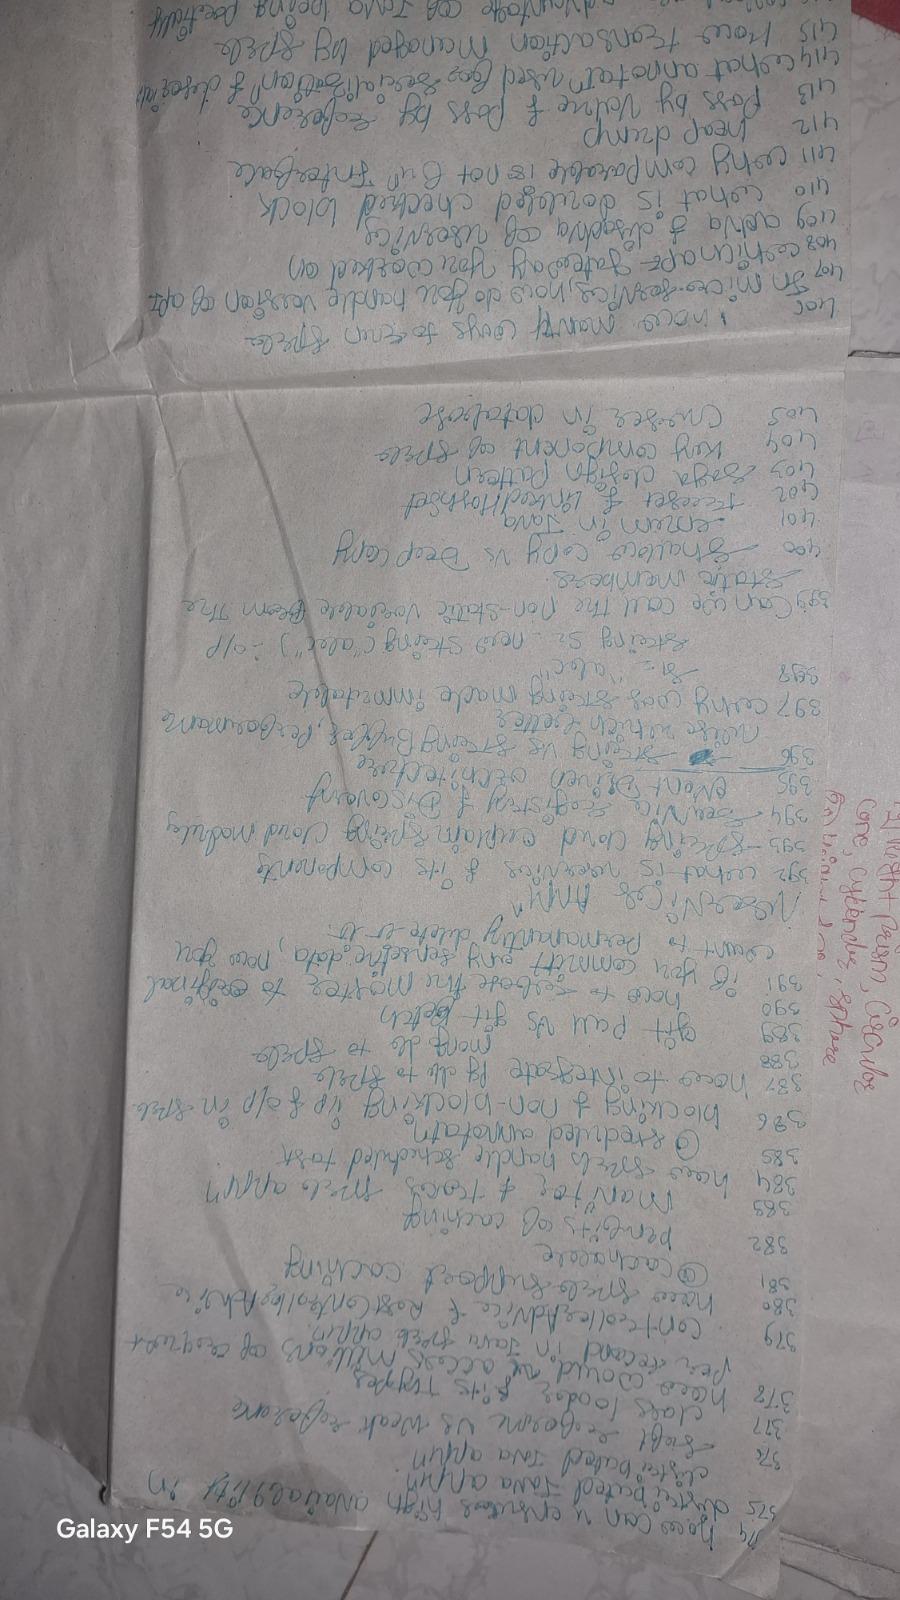 Galaxy F54 5G
374 how can u ensures high availability in
375 distributed Java appln.
distributed Java appln
376 Soft reference vs Weak reference
377 class loader & its types
378 how would we access millions of request
per second in Java spb appln.
379 controllerAdvice & RestControllerAdvice
380 how spb support caching
381 @cachable
382 benefits of caching
383 Manitor & traces spb appln
384 how spb handle scheduled task
385 @ annotatn
386 blocking & non-blocking i/p & o/p in spb.
387 how to integrate pg db to spb
388 mong db to spb
389 git pull vs git fetch
390 how to the master to original
391 if you committ any data, how you
want to permanantly delete it.
μservices Appln
392 what is μservices & its components
393 spring cloud explain spring cloud modules
394 Service registry & Discovery
395 event Driven architecture
396 string vs string Buffer, performance
wise which better
397 why was string made immutable
398 s1 = "abc"
string s2 = new string ("abc") :- o/p
399 Can we call the non-static variable from the
static members.
400 Shallow copy vs Deep copy
401 enum in Java
402 treeset & linkedHashset
403 saga design pattern
404 key component of spb
405 curser in database
406 how many ways to run spb
407 In micro-service, how do you handle version of API
408 which API gateway you worked on
409 adva & disadva of μservice
410 what is doubled checked block
411 why comparable is not fun Interface
412 heap dump
413 pass by value & pass by reference
414 what annotatn used for serialization &
415 How transaction managed by spb
advantage of Java being partially
right prism, circular
cone, cylender, sphere